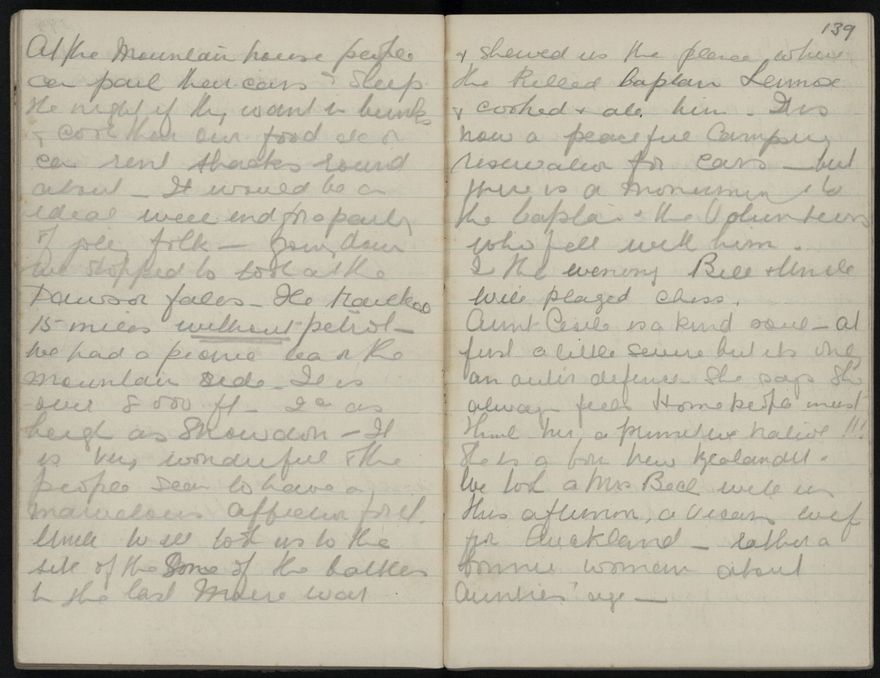 At the Mountain house people
can park their cars & sleep
the night if they want in bunks
& cook their own food also or
can rent shacks round
about - It would be an
ideal week end for a party
of folk - going down
we stopped to look at the
Dawson falls - He tracked
15 miles without petrol -
We had a picnic tea on the
mountain side - It is
over 8000 ft - as
high as Snowdon - It
is very wonderful & the
people seem to have a
marvelous affection for it.
Uncle Will took us to the
site of the Some of the battles
in the last Maori war
139
& shewed us the place where
the killed Captain Lennox
& cooked & ate him. It is
now a peaceful Camping
reservation for cars - but
there is a monument to
the Captain & the Volunteers
who fell with him.
In the evening Bill & Uncle
Will played chess.
Aunt Cecile is a kind soul - at
first a little severe but its only
an outer defence. She says she
always feels Home people must
think her a primitive native !!!
She is a born New Zealander.
We took a Mrs Beck with us
this afternoon, a Vicars wife
for Auckland - rather a
bonnie woman about
Aunties' age -